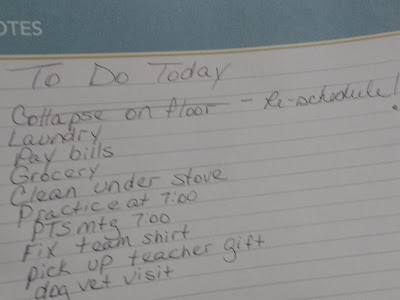 OTES
To Do Today
Collapse on floor - Re-schedule!
Laundry
Pay bills
Grocery
Clean under stove
Practice at 7:00
PTS mtg 7:00
Fix team shirt
pick up teacher gift
dog vet visit